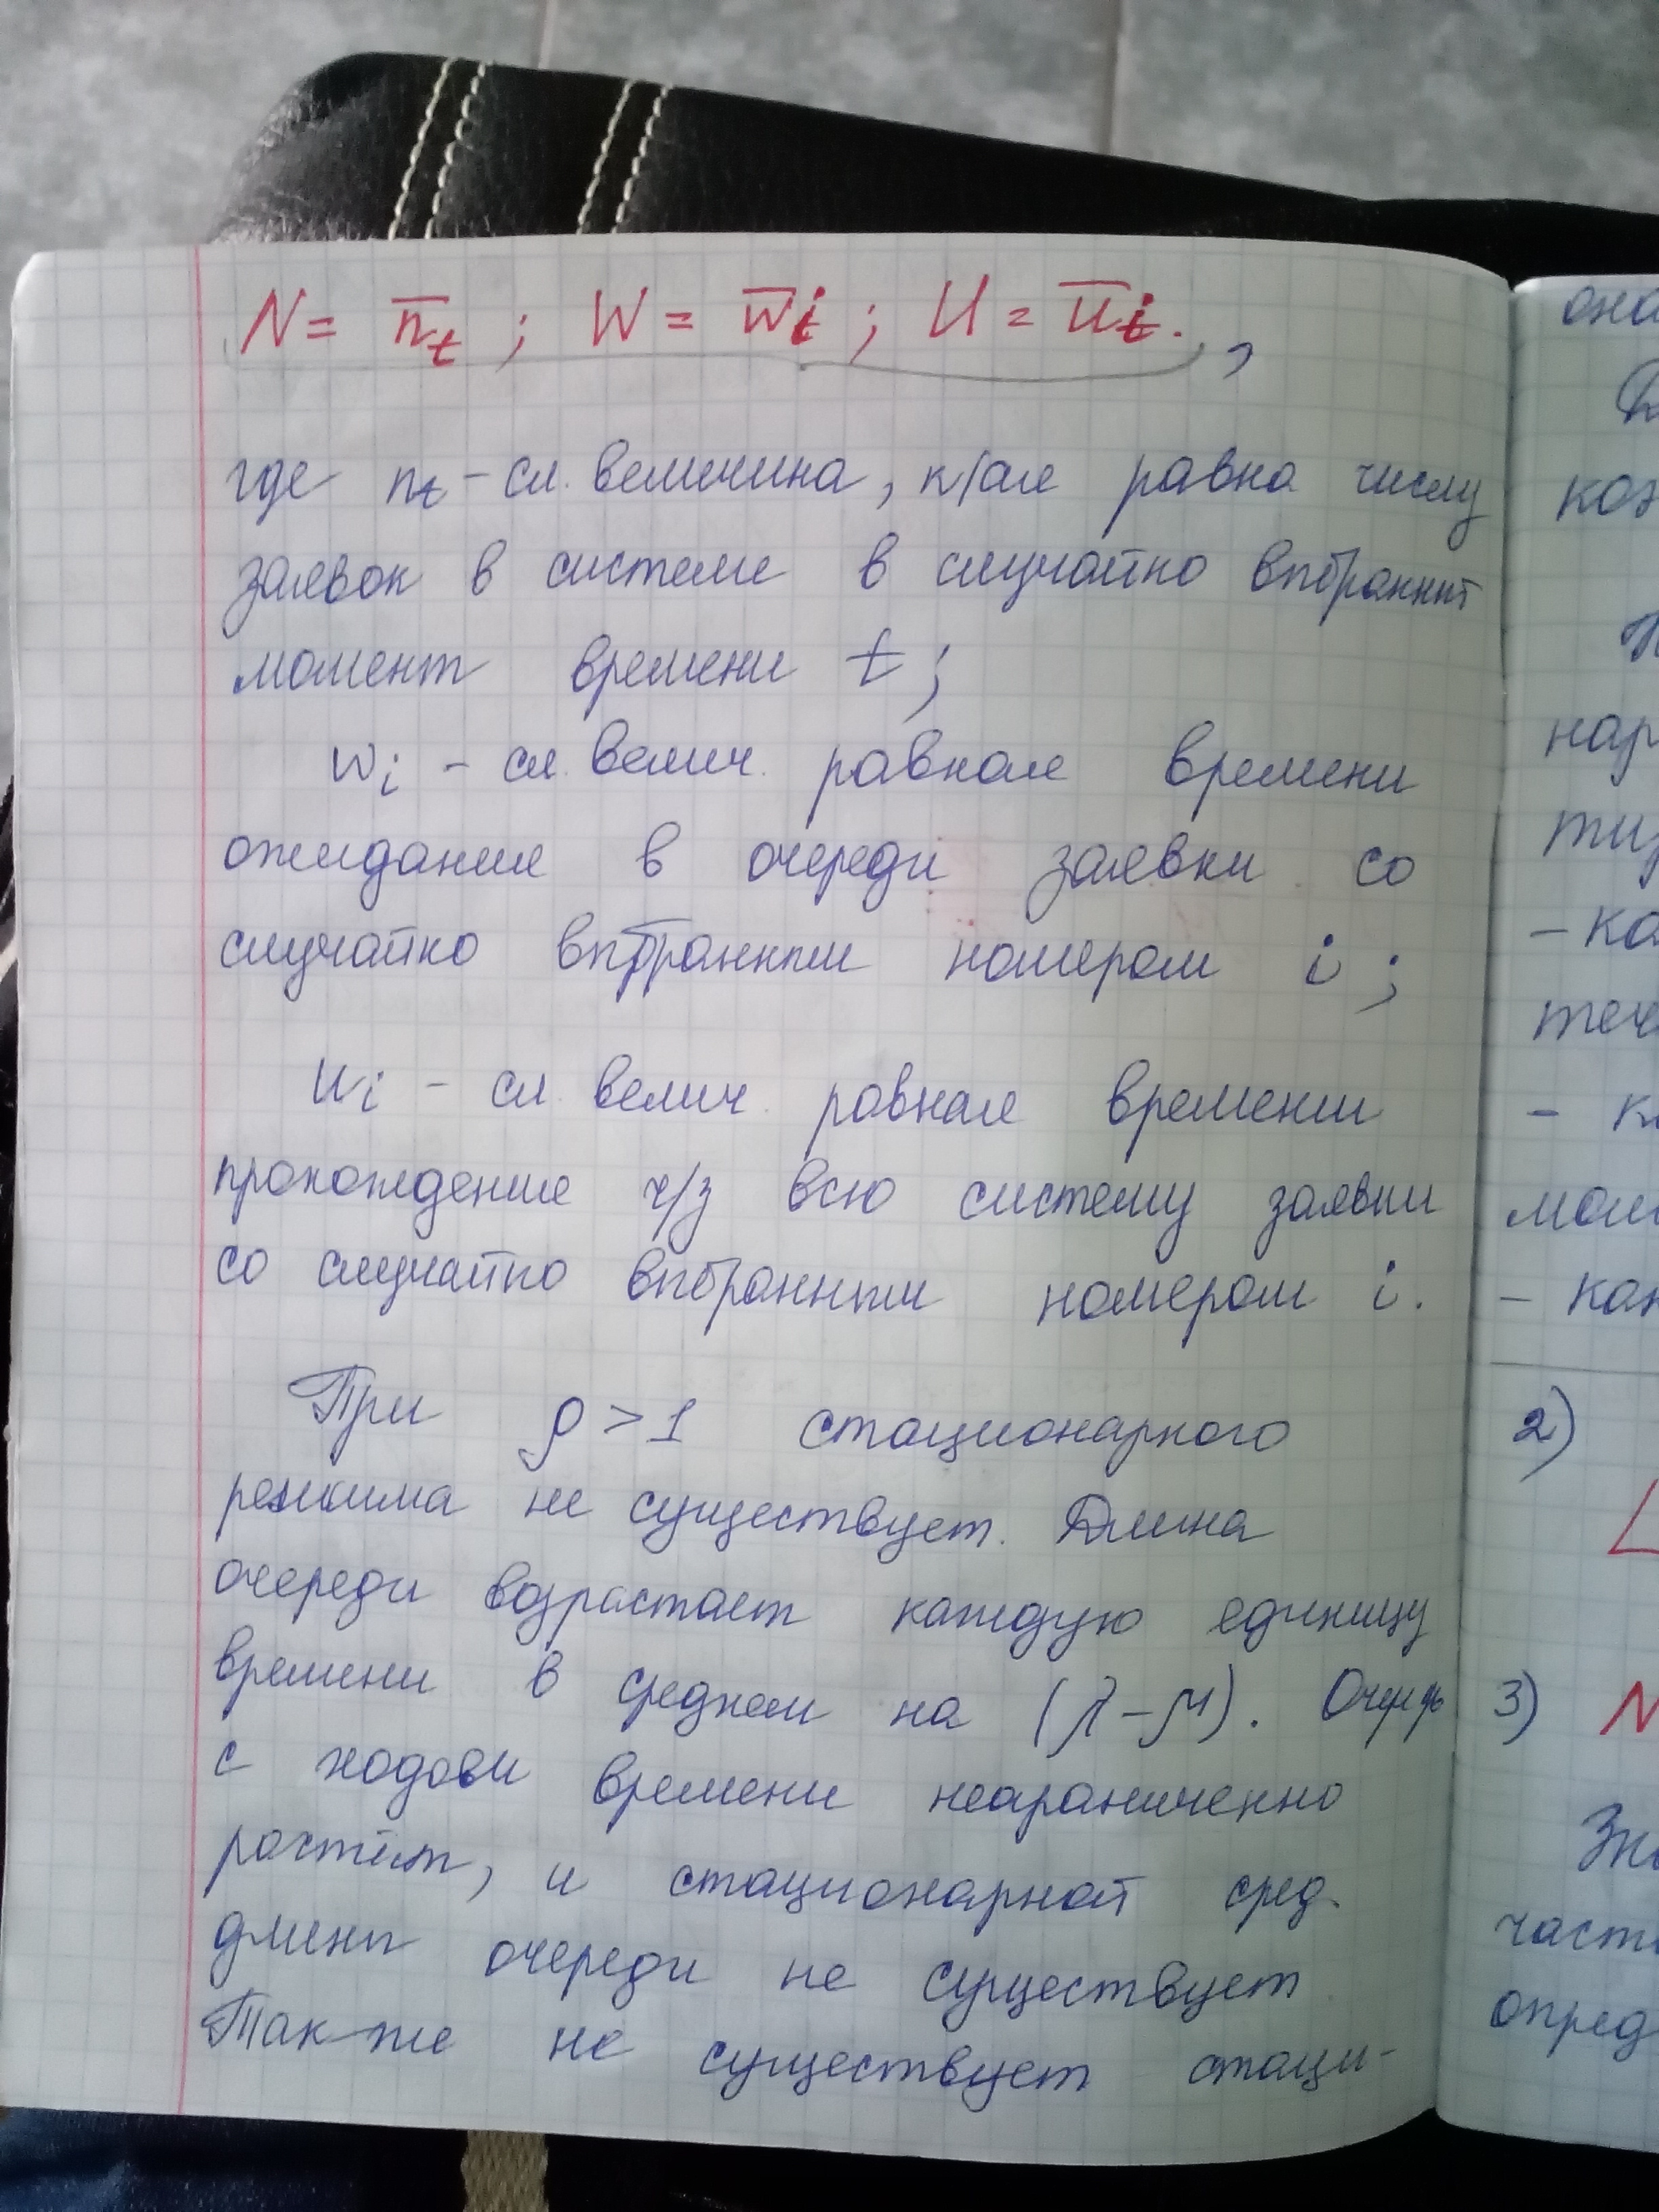 N = n̅t ; W = w̅i ; U = u̅i. ,
где nt - сл. величина, к/ая равна числу
заявок в системе в случайно выбранный
момент времени t ;
wi - сл. велич. равная времени
ожидания в очереди заявки со
случайно выбранным номером i ;
ui - сл. велич. равная времени
прохождения ч/з всю систему заявки
со случайно выбранным номером i.
При ρ > 1 стационарного
режима не существует. Длина
очереди возрастает каждую единицу
времени в среднем на (λ - μ). Очередь
с ходом времени неограниченно
растёт, и стационарной сред.
длины очереди не существует
Так-же не существует стаци-
она
коэ
нар
тиз
- ка
теч
- к
мом
- как
2)
3) N
Зн
част
опред